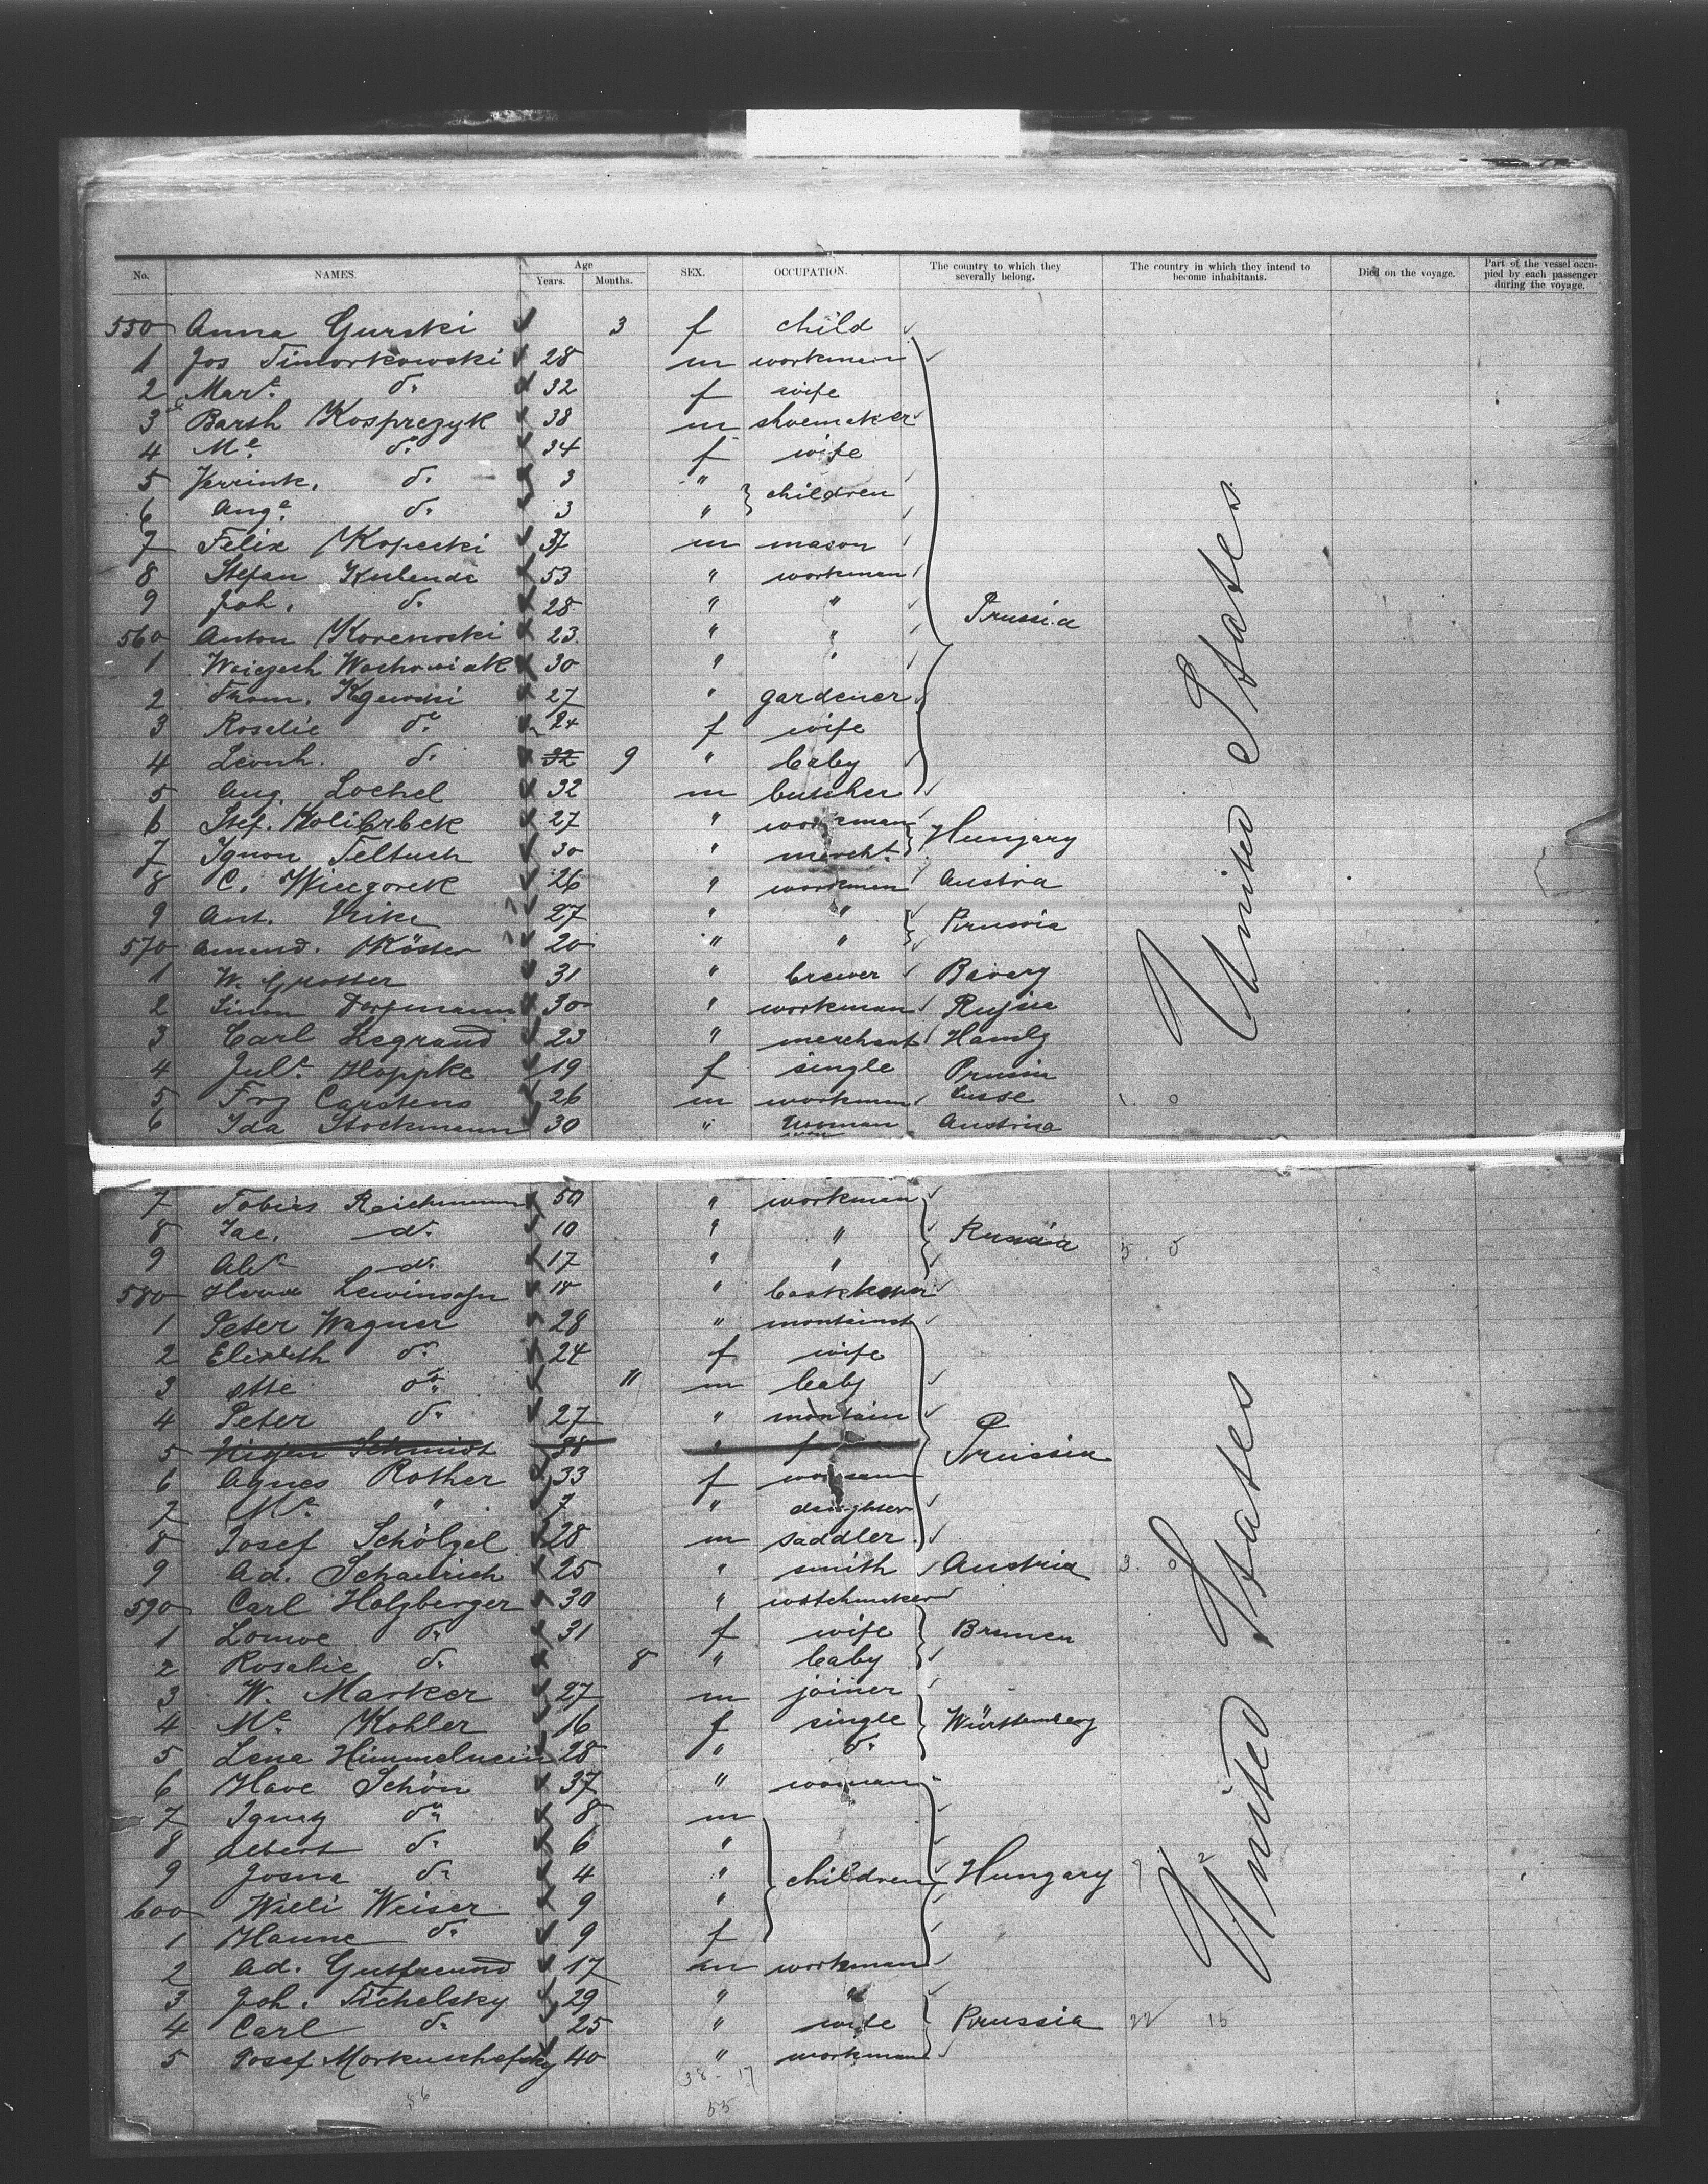 No. NAMES. Age Years. Months. SEX. OCCUPATION. The country to which they severally belong. The country in which they intend to become inhabitants. Died on the voyage. Part of the vessel occupied by each passenger during the voyage.
550 Anna Gurski 3 f child
1 Jos Timorkowski 28 m workman
2 Mar.e do 32 f wife
3 Barth Kosprczyk 38 m shoemaker
4 Me. do 34 f wife
5 Verrink. do 3 " children
6 Ang.e do 3 "
7 Felix Kopecki 37 m mason
8 Stefan Kulenda 53 " workman
9 Joh. do 28 " " Prussia
560 Anton Korenoski 23 " "
1 Woiczech Wachowiak 30 " "
2 Thom. Kgewski 27 " gardener
3 Rosalie do 24 f wife
4 Leonh. do 32 9 " baby
5 Aug. Lochel 32 m butcher
6 Stef. Kolibrbek 27 " workman
7 Ignon Teltusch 30 " mercht. Hungary
8 C. Wiergorek 26 " workman Austria
9 Ant. 27 " " Prussia
570 Amand. Köster 20 " "
1 W. Grotter 31 " brewer Bavary
2 Simon Dorfmann 30 " workman Russia
3 Carl Legrand 23 " merchant Hambg
4 Jul.e Hoppke 19 f single Prussia
5 Frz Carstens 26 m workman
6 Ida Stockmann 30 " woman Austria
United States
7 Tobias Reichmann 50 " workman
8 Jac. do 10 " " Russia
9 Ab. do 17 " "
580 Lewinsohn 18 " bookkeeper
1 Peter Wagner 28 " montainst
2 Elisbeth do 24 f wife
3 Otte do 11 m baby
4 Peter do 27 " montain
5 Schmidt 38 " f Prussia
6 Agnes Rother 33 f woman
7 Me. " 7 " daughter
8 Josef Schölzel 28 m saddler
9 Ad. Schairich 25 " smith Austria 3. 0
590 Carl Holzberger 30 " watchmaker
1 Louwe do 31 f wife Bremen
2 Rosalie do 8 " baby
3 W. Marker 27 m joiner
4 Me. Kohler 16 f single Württemberg
5 Lena Himmelnein 28 " do
6 Have Schön 37 " woman
7 Ignatz do 8 m
8 Albert do 6 "
9 Josna do 4 " children Hungary
600 Wieli Weiser 9 "
1 Hanne do 9 f
2 Ad. Gutfreund 17 m workman
3 Joh. Tichelsky 29 " "
4 Carl do 25 " wife Prussia 22 15
5 Josef Morkuschefsky 40 " workman
United States
38 - 17
56 55